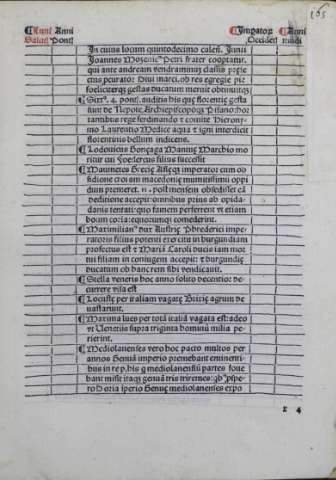 Anni Salutis
Anni Ponti.
Imperator. Occiden.
Anni mundi
165
In cuius locum quintodecimo calen. Junii
Joannes Mozenic' Petri frater cooptatur.
qui ante andream vendraminuz classis prefe
ctus
felicitercq; gestas ducatum meruit obtinuitq;
Sixt' .4. ponti. auditis his que florentie gesta
sunt de Nepote Archiepiscopoq; Pisano: hor
tantibus rege ferdinando & comite Hierony-
mo Laurentio Medice aqua & igni interdicit
florentinis bellum indicens.
Lodovicus Gonzaga Mantue Marchio mo
ritur cui Foedericus filius successit
Maumetes Grecie Asieq; imperator cum ob
sidione croiam macedonie munitissimi oppi
dum premeret. post mensem obsedisset eā
deditione accepit: omnibus prius ab opida-
danis tentati: quo famem perferrent vt etiam
boum coria: equorumq; comederint.
Maximilian' dux Austrie Phrederici impe-
ratoris filius potenti exercitu in burgundiam
profectus est & Maria Caroli ducis iam mor
tui filiam in coniugem accepit: & burgundie
ducatum ob hancrem sibi vendicauit.
Stella veneris hoc anno solito decentior de-
currere visa est
Locuste per italiam vagate Brixie agrum de
uastarunt.
Maxima lues per totā italiā vagata est: adeo
vt Venetiis supra triginta hominū milia pe-
rierint.
Mediolanenses vero hoc pacto multos per
annos Genuā imperio premebant eminenti-
bus in rep. his q mediolanensiū partes foue
bant misit itaq; genuā tris triremes: qb' pspe-
ro Doria iperio Genue mediolanenses expo
r 4